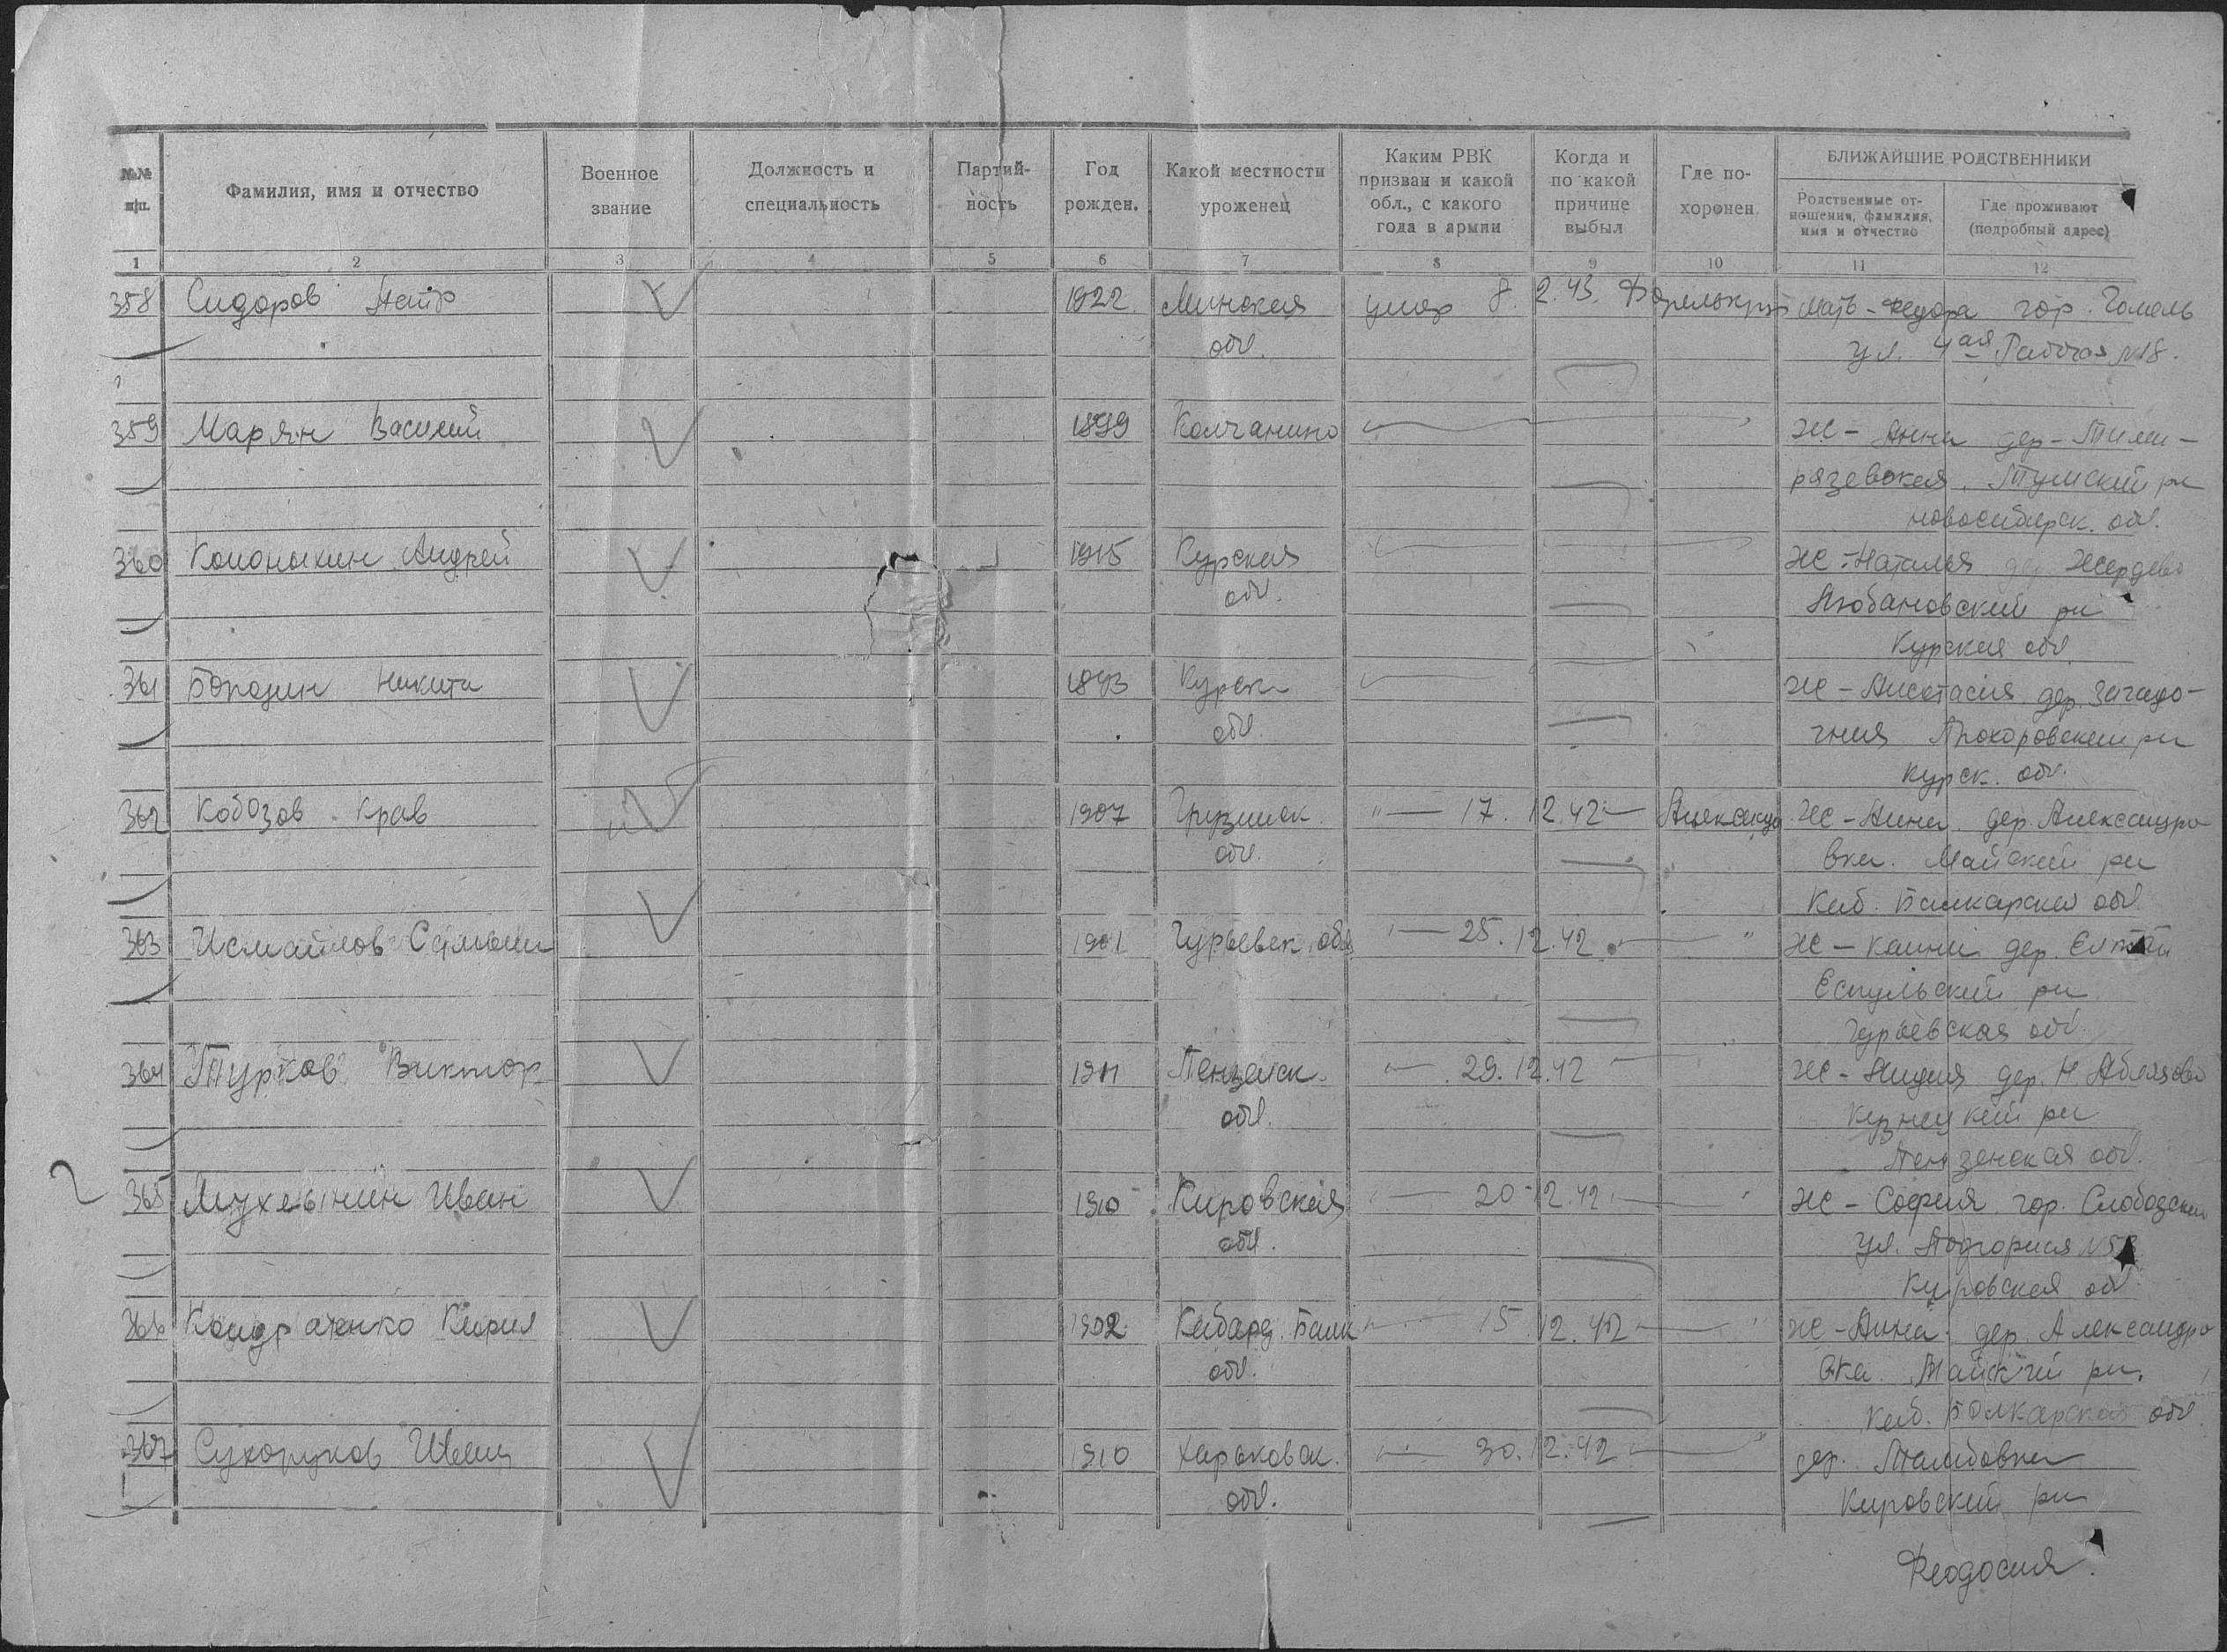 №№ п/п.
Фамилия, имя и отчество
Военное звание
Должность и специальность
Партийность
Год рожден.
Какой местности уроженец
Каким РВК призван и какой обл., с какого года в армии
Когда и по какой причине выбыл
Где похоронен
БЛИЖАЙШИЕ РОДСТВЕННИКИ
Родственные отношения, фамилия, имя и отчество
Где проживают (подробный адрес)
1 2 3 4 5 6 7 8 9 10 11 12
358 Сидоров Петр 1922 Минская умер 8.2.43. Мать - гор. Гомель
обл. ул. 4ая Рабочая №18.
359 Марян Василий 1899 Колчанино Ж - Анна дер - Тими-
рязевская. ри
новосибирск. обл.
360 Андрей 1915 Курская Ж - Наталья дер Жердево
обл. ри
Курская обл
361 Никита Курск Ж - дер.
обл. Прохоровский ри
курск. обл.
362 Кобозов 1907 обл. "— 17.12.42 — Ж - Анна дер. Александро
вка. Майский ри
Каб. Балкарская обл
363 Исмайлов 1901 Гурьевск. обл "— 25.12.42 " Ж - дер.
ри
Гурьевская обл.
364 Турков Виктор 1911 Пензенск. "— 29.12.42 Ж - Лидия дер. Н Аблязово
обл. Кузнецкий ри
Пензенская обл.
365 Иван 1910 Кировская "— 20.12.42 " Ж - София гор. Слободской
обл. ул. Подгорная
Кировская обл
366 Кондратенко Кирил 1902 Кабард. Балк "— 15.12.42 — " Ж - Анна дер. Александро
обл. вка. Майский ри.
Каб. Балкарская обл
367 Сухоруков Иван 1910 Харьковск. "— 30.12.42 — " дер.
обл. Кировский ри
Феодосия.